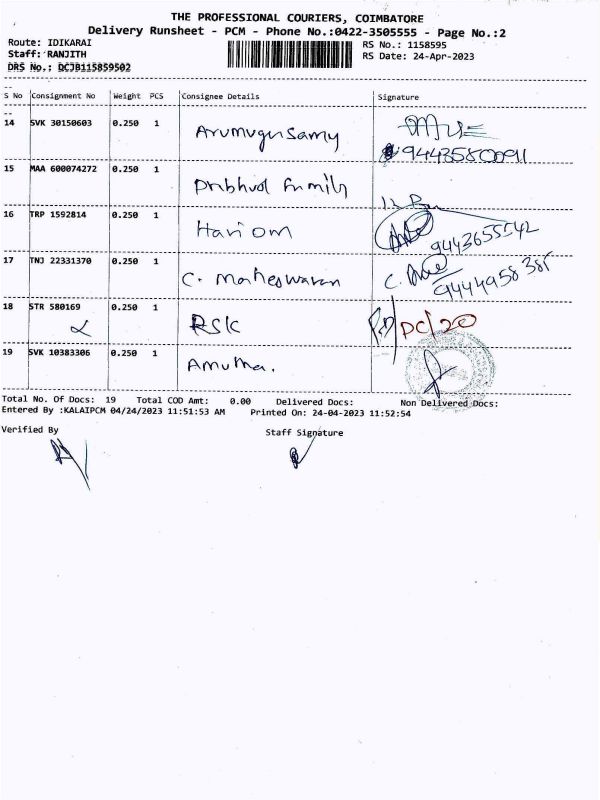 THE PROFESSIONAL COURIERS, COIMBATORE
Delivery Runsheet - PCM - Phone No.:0422-3505555 - Page No.:2
Route: IDIKARAI RS No.: 1158595
Staff: RANJITH RS Date: 24-Apr-2023
DRS No.: DCJB115859502
S No Consignment No Weight PCS Consignee Details Signature
14 SVK 30150603 0.250 1 Arumugusamy
15 MAA 600074272 0.250 1 Family
16 TRP 1592814 0.250 1 Hari om
9443655542
17 TNJ 22331370 0.250 1 C. Maheswaran C.
9444958385
18 STR 580169 0.250 1 RSK DC/20
19 SVK 10383306 0.250 1
Total No. Of Docs: 19 Total COD Amt: 0.00 Delivered Docs: Non Delivered Docs:
Entered By :KALAIPCM 04/24/2023 11:51:53 AM Printed On: 24-04-2023 11:52:54
Verified By Staff Signature